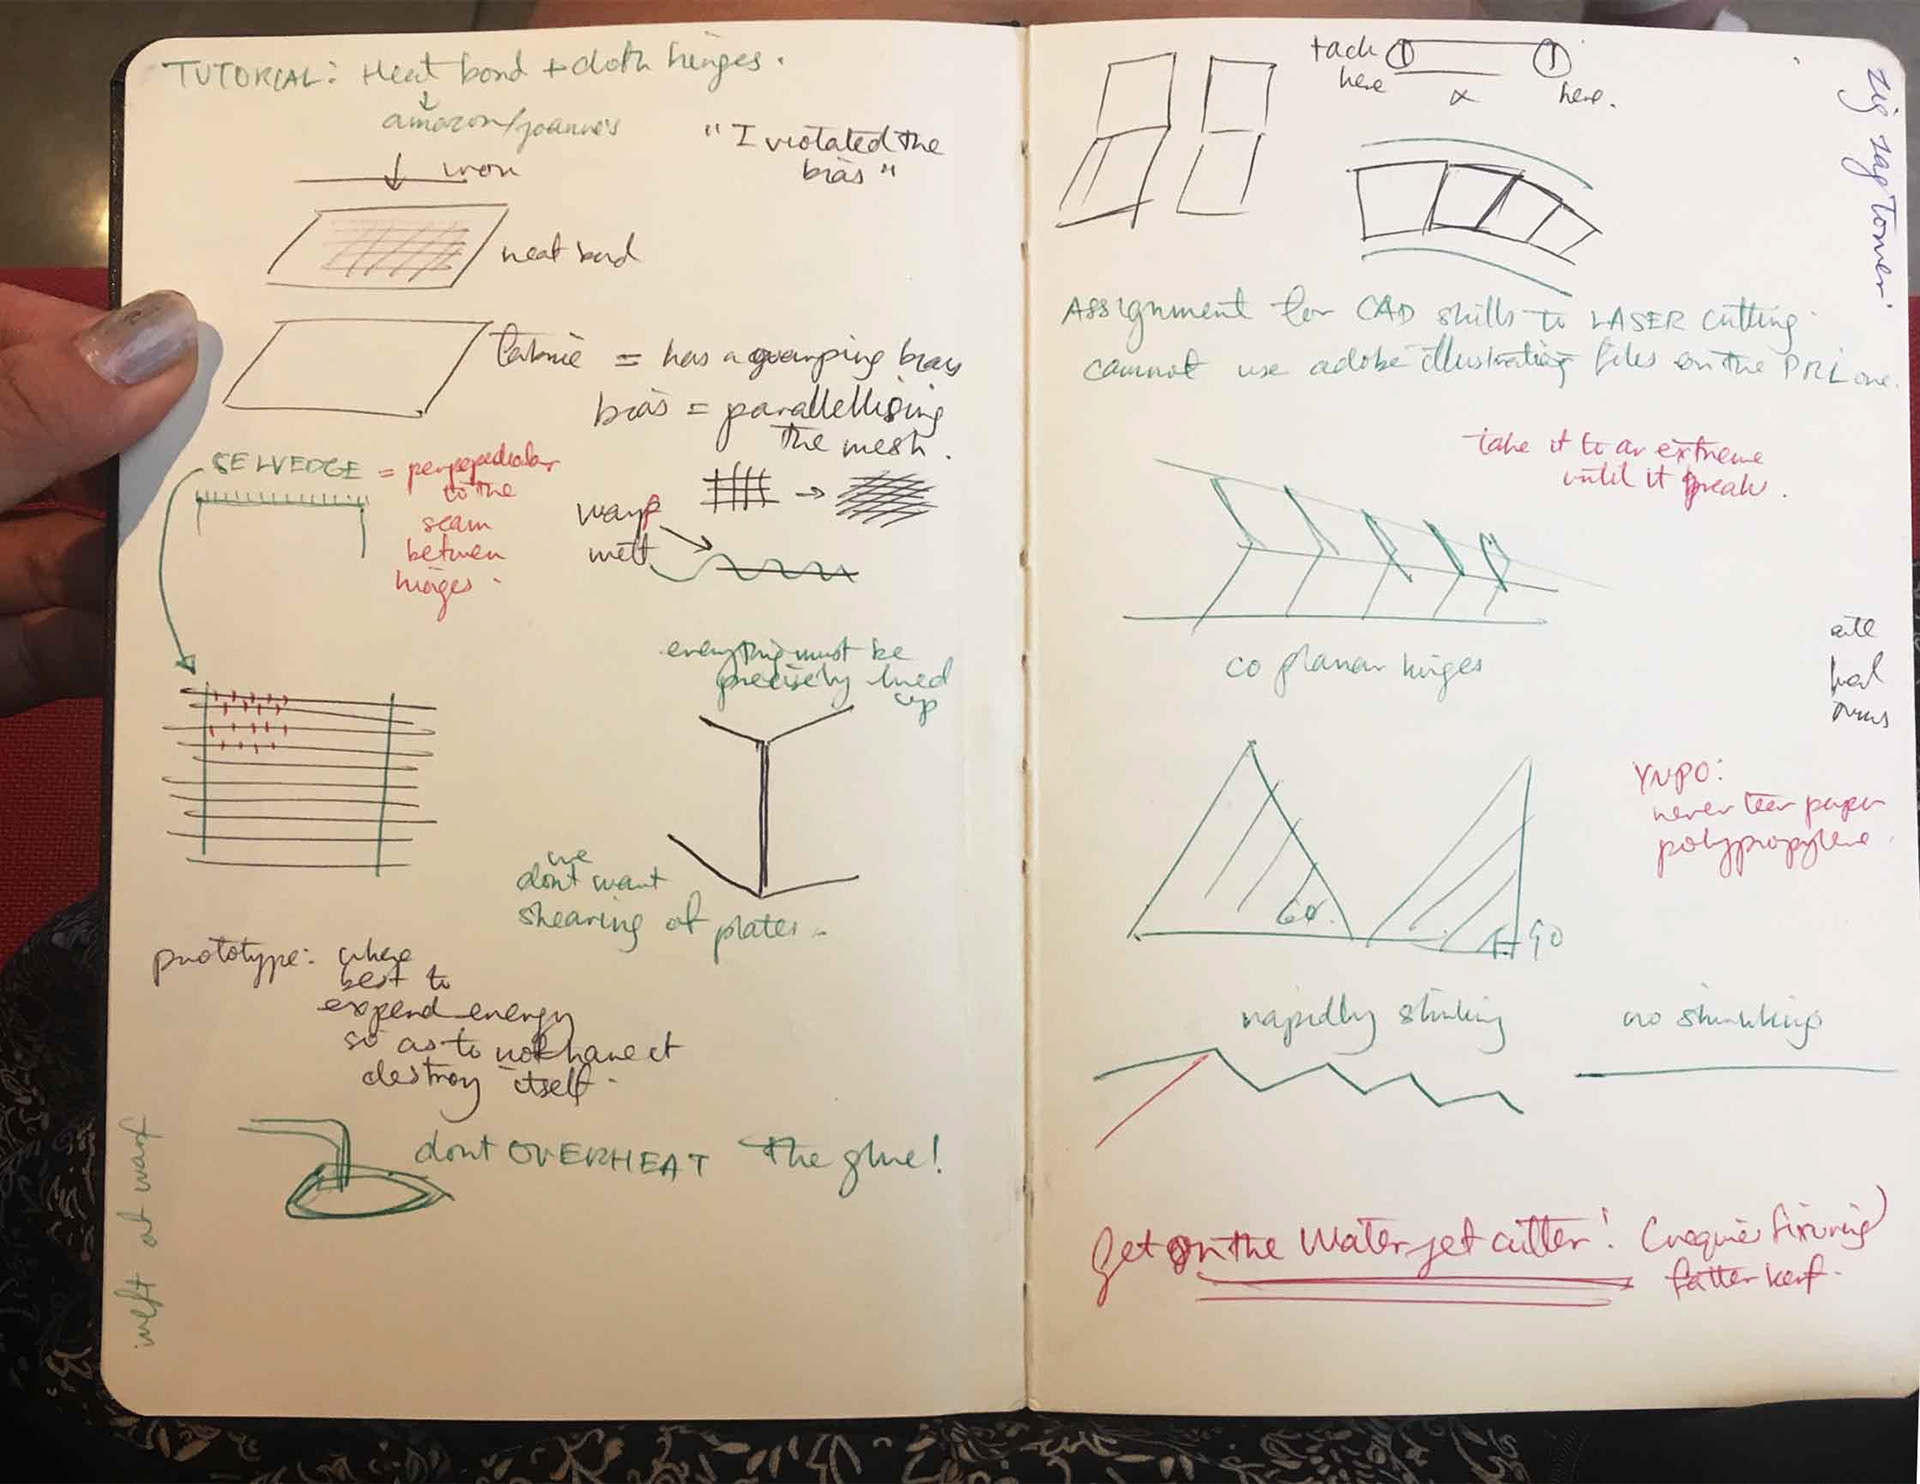 TUTORIAL: Heat bond + cloth hinges.
amazon/joanne's
iron
"I violated the
bias"
heat bond
fabric = has a bias
bias = parallellising
the mesh.
SELVEDGE = perpepedicular
to the
seam
between
hinges.
warp
weft
everything must be
precisely lined
up
we
dont want
shearing of plates.
prototype: where
best to
expend energy
so as to not have it
destroy itself.
dont OVERHEAT the glue!
weft at warp
tack
here
here.
zig zag Tower
Assignment for CAD skills to LASER cutting.
cannot use adobe illustrating files on the PRL one.
take it to an extreme
until it break.
co planar hinges
YUPO:
never tear paper
polypropylene.
60
90
rapidly
no shrinking
Get on the Water jet cutter! (require fixturing)
fatter kerf.